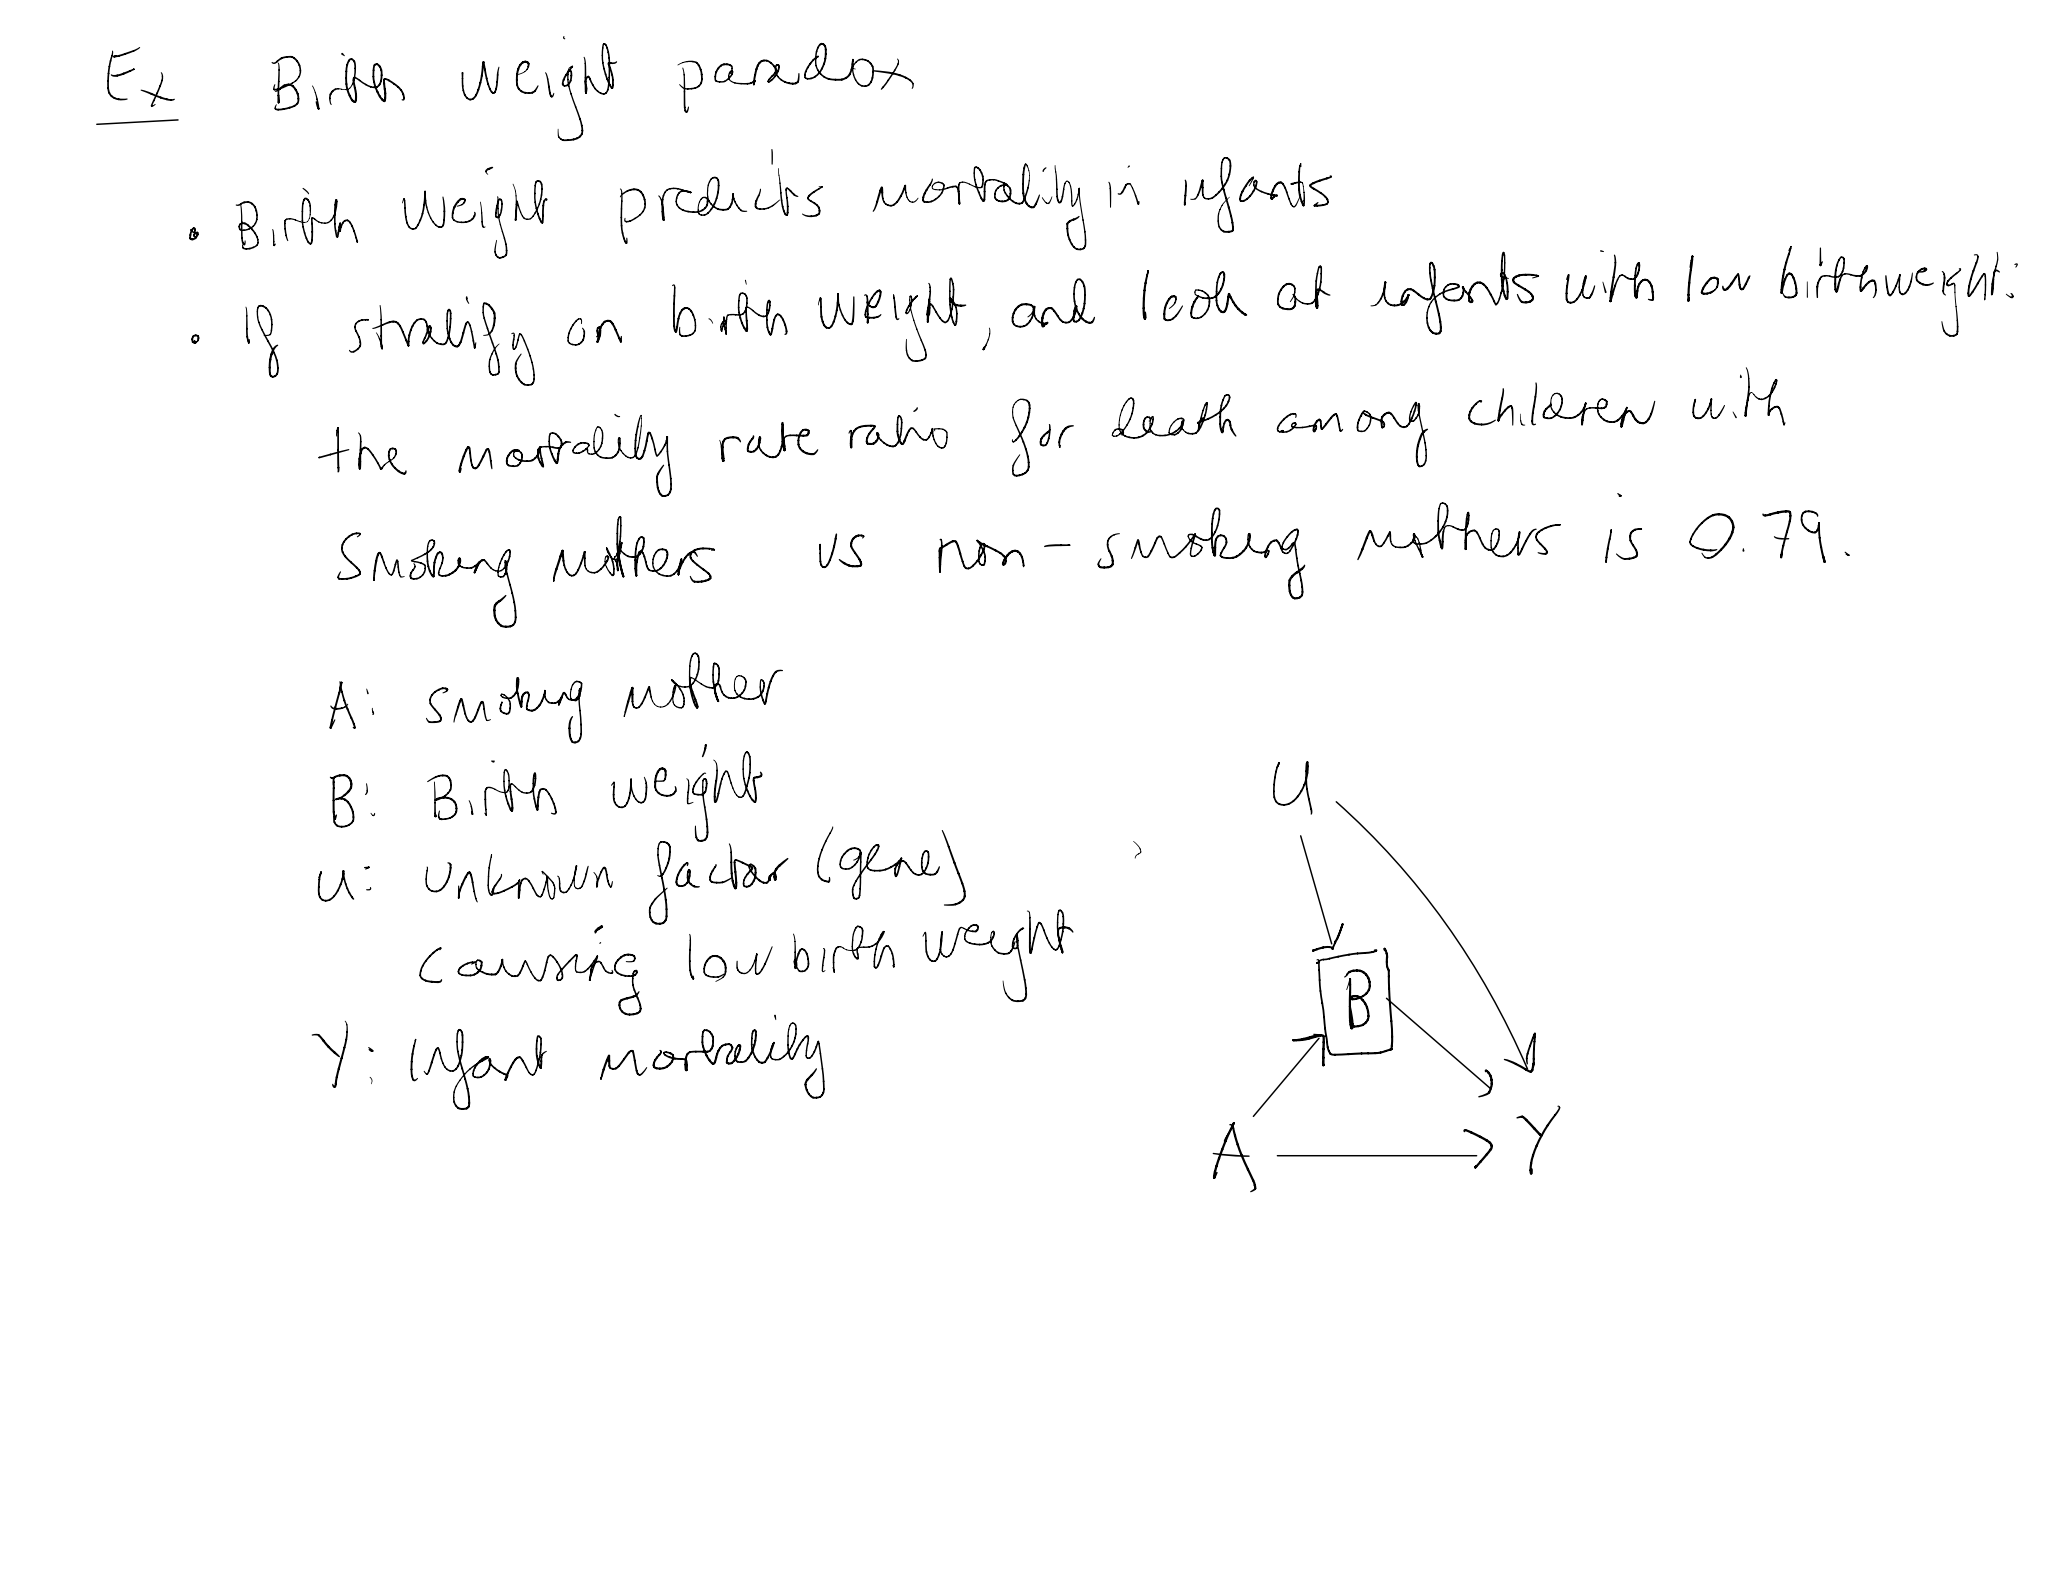 Ex Birth weight paradox
• Birth weight predicts mortality in infants
• If stratify on birth weight, and look at infants with low birthweight:
the mortality rate ratio for death among children with
smoking mothers vs non-smoking mothers is 0.79.
A: smoking mother
B: Birth weight
U: unknown factor (gene)
causing low birth weight
Y: Infant mortality
U
B
A
Y